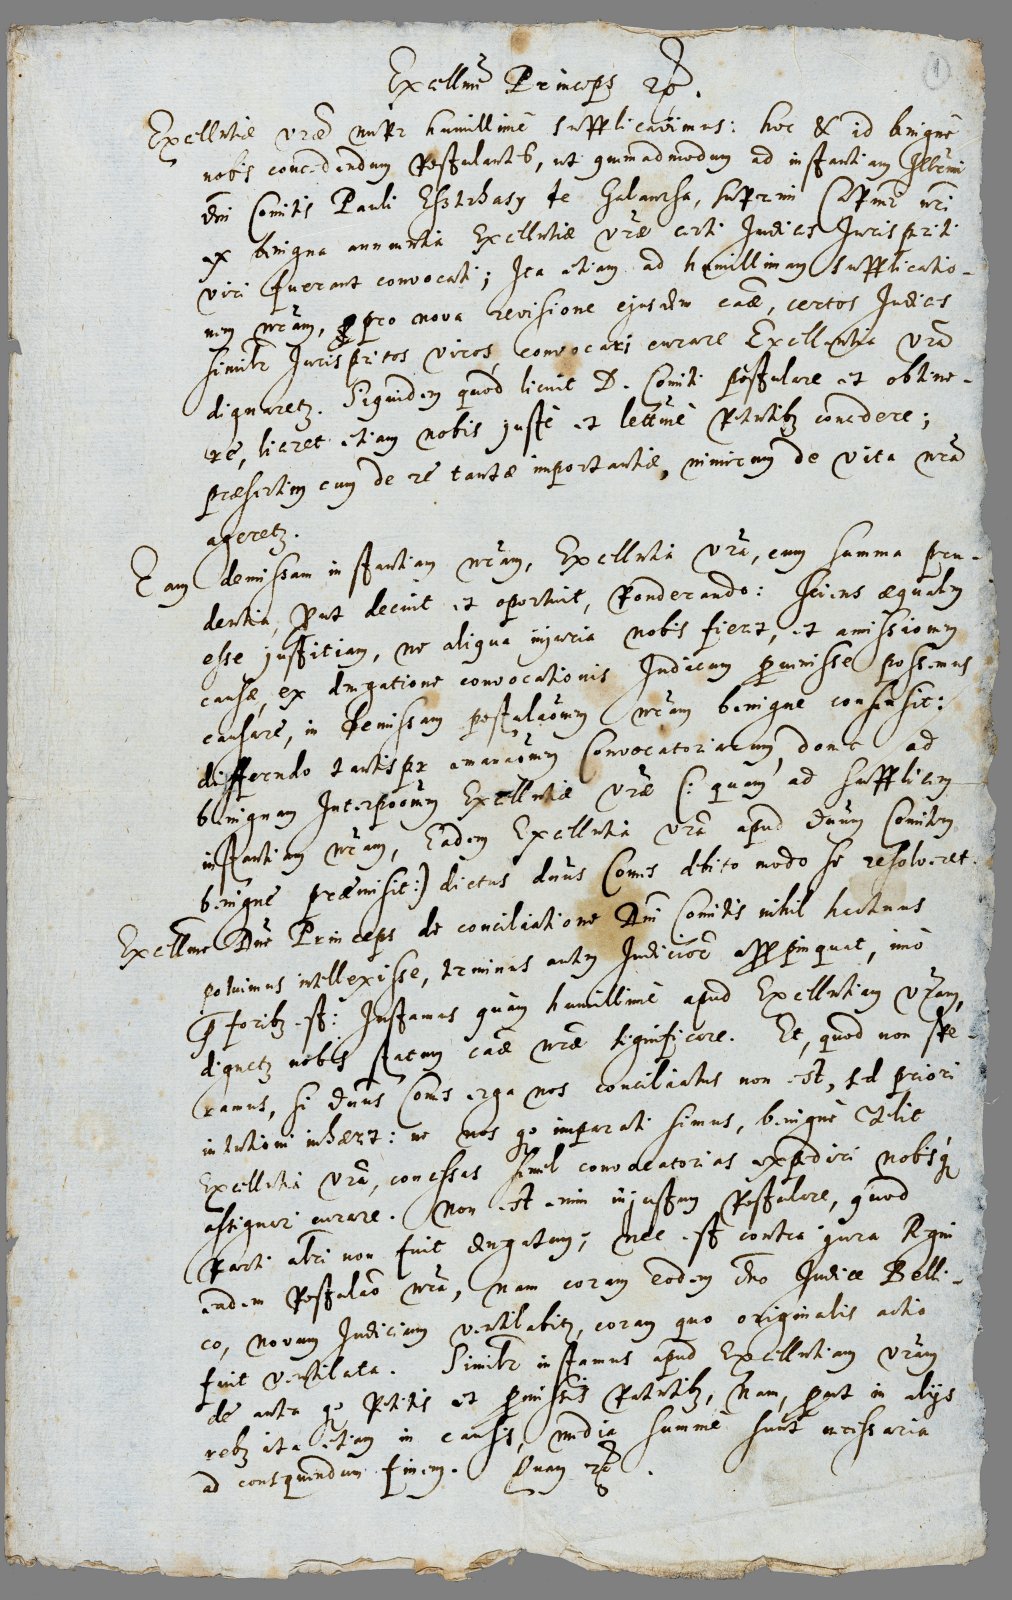 1
Excellme Princeps etc.
Excellentiae vrae nuper humillimè supplicavimus: hoc & id benignè
nobis concedendum postulantes, ut quemadmodum ad instantiam Illmi
Dni Comitis Pauli Eszterhasy de Galantha, supremi Capnei nri
ex benigna annuentia Excelltiae vrae certi Judices Jurisperiti
viri fuerant convocati; Ita etiam ad humillimam supplicatio-
nem nram, pro nova revisione ejusdem caae, certos Judices
similr Jurisperitos viros, convocari curare Excellentia vra
dignaretr. Siquidem quod licuit D. Comiti postulare et obtine-
re, liceret etiam nobis justè et petentibq concedere;
praesertim cum de re tantae importantiae, nimirum de vita nra
ageretr.
Eam demissam instantiam nram, Excelltia vra, cum summa pru-
dentia, put decuit et oportuit, ponderando: sciens aequalem
esse justitiam, ne aliqua injuria nobis fieret, et amissionem
causae, ex denegatione convocationis Judicum pvenisse possemus
causare, in demissam postulaonem nram benigne consensit:
differendo tantisper emanaonem Convocatoriarum, donec ad
benignam Interpoonem Excelltiae vrae (: quam ad supplicem
instantiam nram, Eadem Excelltia vra apud Dnum Comitem
benignè praemisit:) dictus dnus Comes debito modo se resolveret.
Excellme Dne Princeps de conciliatione Dni Comitis nihil hactenus
potuimus intellexisse, terminus autem Judicior appropinquat, imò
p foribq est: Instamus quàm humillimè apud Excelltiam vram,
dignetr nobis statum caae nrae significare. Et, quod non spe-
ramus, si Dnus Comes erga nos conciliatus non est, sed priori
intentioni inhaeret: ne nos imparati simus, benignè velit
Excelltia vra, concessas simel convocatorias expediri nobisq
assignari curare. Non est enim injustum postulare, quod
parti alteri non fuit denegatum; nec est contra jura Regni
eadem postulao nra, nam coram eodem Dno Judice Belli-
co, novum Judicium ventilabitr, coram quo originalis actio
fuit ventilata. Similr instamus apud Excelltiam vram
de ante petitis et pmissis patentibq, Nam, put in alijs
rebq ita etiam in causis, media summè sunt necessaria
ad consequendum finem. Quam etc.